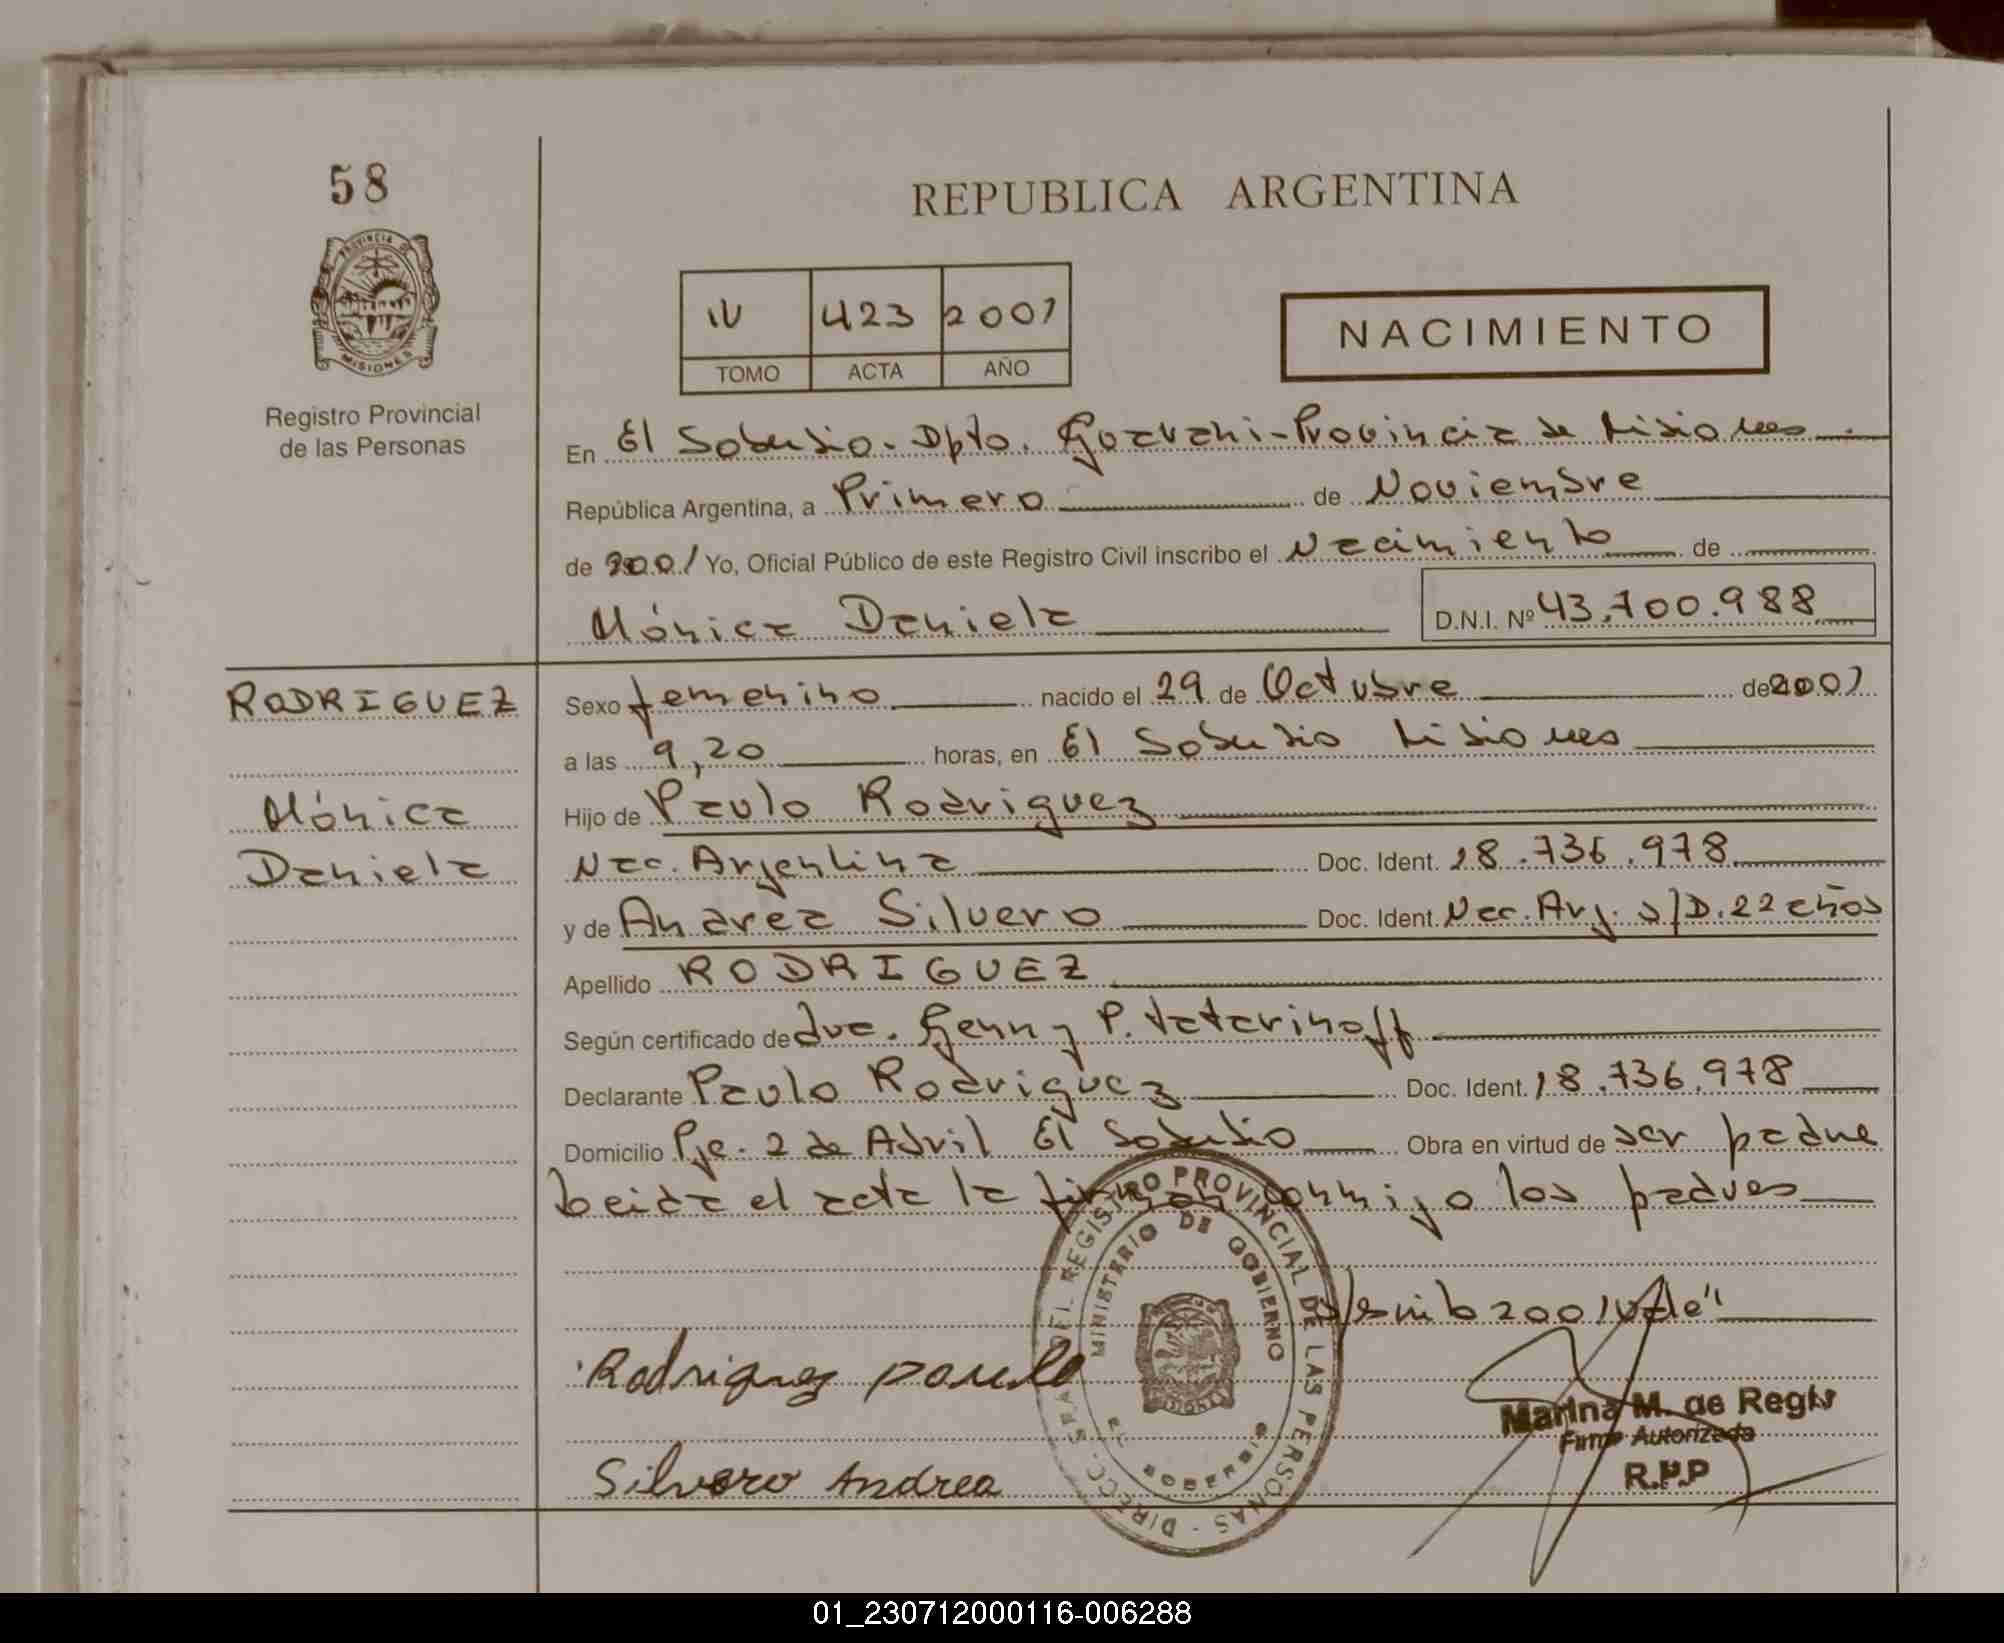 58
REPUBLICA ARGENTINA
PROVINCIA DE
MISIONES
Registro Provincial
de las Personas
IV 423 2001
TOMO ACTA AÑO
NACIMIENTO
En El Soberbio - Dpto. Guarani - Provincia de Misiones
República Argentina, a Primero de Noviembre
de 2001 Yo, Oficial Público de este Registro Civil inscribo el Nacimiento de
Mónica Daniela D.N.I. Nº 43.700.988
RODRIGUEZ
Mónica
Daniela
Sexo femenino nacido el 29 de Octubre de 2001
a las 9,20 horas, en El Soberbio Misiones
Hijo de Paulo Rodriguez
Nac. Argentina Doc. Ident. 18.736.978
y de Andrea Silvero Doc. Ident. Nac. Arg. s/D. 22 años
Apellido RODRIGUEZ
Según certificado de dra. Genny P. Tatarinoff
Declarante Paulo Rodriguez Doc. Ident. 18.736.978
Domicilio Pje. 2 de Abril El Soberbio Obra en virtud de ser padre
Leida el acta la firman conmigo los padres
2001 vale"
Rodriguez paulo
Silvero Andrea
DIRECC. GRAL. DEL REGISTRO PROVINCIAL DE LAS PERSONAS -
MINISTERIO DE GOBIERNO
EL SOBERBIO
Marina M. de Regis
Firma Autorizada
R.P.P
01_230712000116-006288